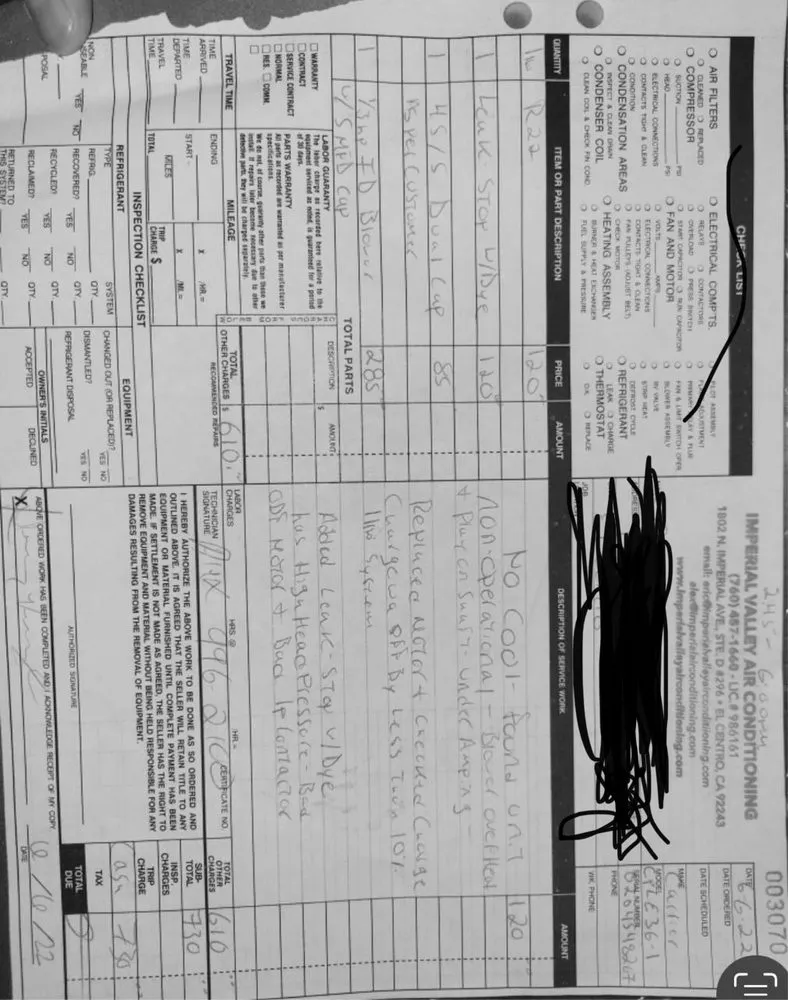 245 - 600pm
003070
IMPERIAL VALLEY AIR CONDITIONING
(760) 487-1660 - LIC# 986161
1802 N. IMPERIAL AVE., STE. D #296 • EL CENTRO, CA 92243
email: eric@imperialvalleyairconditioning.com
alex@imperialvalleyairconditioning.com
www.imperialvalleyairconditioning.com
DATE 6-6-22
DATE ORDERED
DATE SCHEDULED
MAKE Carrier
MODEL
SERIAL NUMBER
PHONE
WK. PHONE
JOB
CHECK LIST
AIR FILTERS
CLEANED REPLACED
COMPRESSOR
SUCTION PSI
HEAD PSI
ELECTRICAL CONNECTIONS
CONTACTS TIGHT & CLEAN
CONDITION
CONDENSATION AREAS
INSPECT & CLEAN DRAIN
CONDENSER COIL
CLEAN COIL & CHECK FIN COND.
ELECTRICAL COMP'TS.
RELAYS CONTACTORS
OVERLOAD PRESS. SWITCH
START CAPACITOR RUN CAPACITOR
FAN AND MOTOR
VOLTS AMPS
ELECTRICAL CONNECTIONS
CONTACTS TIGHT & CLEAN
FAN PULLEYS (ADJUST BELT)
CHECK MOTOR
HEATING ASSEMBLY
BURNER & HEAT EXCHANGER
FUEL SUPPLY & PRESSURE
PILOT ASSEMBLY
ADJUSTMENT
PRIMARY & FLUE
FAN & LIMIT SWITCH OPER.
BLOWER ASSEMBLY
RV VALVE
STRIP HEAT
DEFROST CYCLE
REFRIGERANT
LEAK CHARGE
THERMOSTAT
O.K. REPLACE
QUANTITY ITEM OR PART DESCRIPTION PRICE AMOUNT
R22 120
1 Leak Stop w/Dye 120
1 45/5 Dual Cap 85
as per Customer
1 1/3 hp ID Blower 285
w/5 MFD Cap
TOTAL PARTS
DESCRIPTION OF SERVICE WORK AMOUNT
No Cool found unit 120
non operational Blower overheat
Replaced Motor & Checked Charge
Charge was off By Less Than 10%
System
Added Leak Stop w/Dye
has High Head Pressure - Bad
ODF Motor & Bad 1p Contactor
WARRANTY
CONTRACT
SERVICE CONTRACT
NORMAL
RES. COMM.
LABOR GUARANTY
The labor charge as recorded here relative to the
equipment serviced as noted, is guaranteed for a period
of 30 days.
PARTS WARRANTY
All parts as recorded are warranted as per manufacturer
specifications.
We do not, of course, guaranty other parts than those we
install. If repairs later become necessary due to other
defective parts, they will be charged separately.
DESCRIPTION AMOUNT
$
TOTAL OTHER CHARGES $ 610
RECOMMENDED REPAIRS
LABOR CHARGES HRS. @ HR. =
TECHNICIAN SIGNATURE CERTIFICATE NO.
TOTAL OTHER CHARGES 610
TRAVEL TIME MILEAGE
TIME ARRIVED ENDING
TIME DEPARTED START -
TRAVEL TIME TOTAL MILES
X /HR. =
X /MI. =
TRIP CHARGE $
INSPECTION CHECKLIST
REFRIGERANT EQUIPMENT
TYPE REFRIG. SYSTEM QTY.
RECOVERED? YES NO QTY.
RECYCLED? YES NO QTY.
RECLAIMED? YES NO QTY.
RETURNED TO THIS SYSTEM? YES NO QTY.
YES NO
CHANGED OUT (OR REPLACED)? YES NO
DISMANTLED? YES NO
REFRIGERANT DISPOSAL
OWNER'S INITIALS
ACCEPTED DECLINED
I HEREBY AUTHORIZE THE ABOVE WORK TO BE DONE AS SO ORDERED AND
OUTLINED ABOVE. IT IS AGREED THAT THE SELLER WILL RETAIN TITLE TO ANY
EQUIPMENT OR MATERIAL FURNISHED UNTIL COMPLETE PAYMENT HAS BEEN
MADE. IF SETTLEMENT IS NOT MADE AS AGREED, THE SELLER HAS THE RIGHT TO
REMOVE EQUIPMENT AND MATERIAL WITHOUT BEING HELD RESPONSIBLE FOR ANY
DAMAGES RESULTING FROM THE REMOVAL OF EQUIPMENT.
AUTHORIZED SIGNATURE
SUB-TOTAL 730
INSP. CHARGES
TRIP CHARGE
TAX
TOTAL DUE
cash 730
ABOVE ORDERED WORK HAS BEEN COMPLETED AND I ACKNOWLEDGE RECEIPT OF MY COPY.
X
DATE